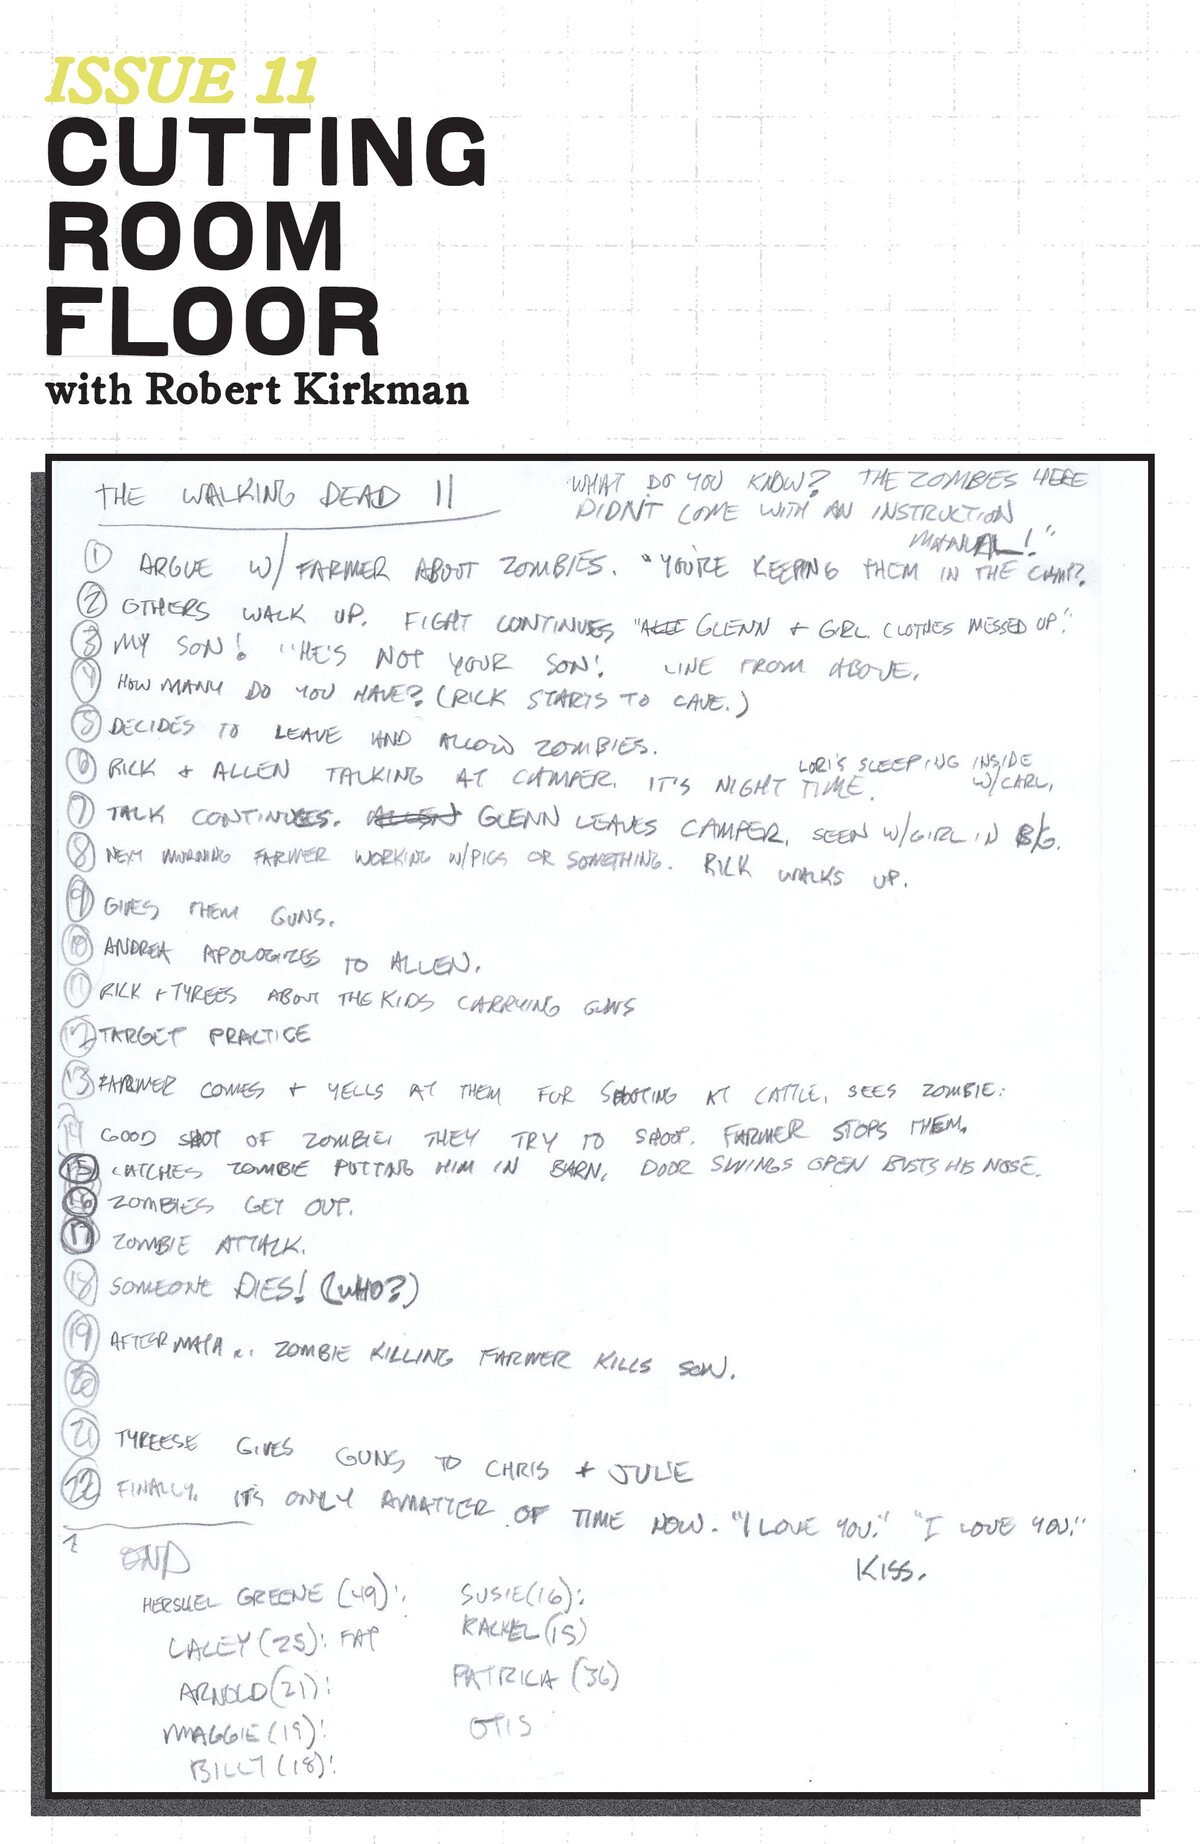 ISSUE 11
CUTTING
ROOM
FLOOR
with Robert Kirkman
THE WALKING DEAD 11
WHAT DO YOU KNOW? THE ZOMBIES HERE
DIDN'T COME WITH AN INSTRUCTION
MANUAL!"
1 ARGUE W/ FARMER ABOUT ZOMBIES. "YOU'RE KEEPING THEM IN THE CAMP?
2 OTHERS WALK UP. FIGHT CONTINUES "GLENN + GIRL CLOTHES MESSED UP."
3 MY SON! "HE'S NOT YOUR SON! LINE FROM ABOVE.
4 HOW MANY DO YOU HAVE? (RICK STARTS TO CAVE.)
5 DECIDES TO LEAVE AND ALLOW ZOMBIES.
6 RICK + ALLEN TALKING AT CAMPER. IT'S NIGHT TIME. LORI'S SLEEPING INSIDE
W/CARL.
7 TALK CONTINUES. ALLEN GLENN LEAVES CAMPER, SEEN W/GIRL IN B/G.
8 NEXT MORNING FARMER WORKING W/PIGS OR SOMETHING. RICK WALKS UP.
9 GIVES THEM GUNS.
10 ANDREA APOLOGIZES TO ALLEN.
11 RICK + TYREES ABOUT THE KIDS CARRYING GUNS
12 TARGET PRACTICE
13 FARMER COMES + YELLS AT THEM FOR SHOOTING AT CATTLE, SEES ZOMBIE:
14 GOOD SHOT OF ZOMBIE: THEY TRY TO SHOOT. FARMER STOPS THEM.
15 CATCHES ZOMBIE PUTTING HIM IN BARN, DOOR SWINGS OPEN BUSTS HIS NOSE.
16 ZOMBIES GET OUT.
17 ZOMBIE ATTACK.
18 SOMEONE DIES! (WHO?)
19 AFTERMATH... ZOMBIE KILLING FARMER KILLS SON.
20
21 TYREESE GIVES GUNS TO CHRIS + JULIE
22 FINALLY. IT'S ONLY A MATTER OF TIME NOW. "I LOVE YOU." "I LOVE YOU."
KISS.
END
HERSHEL GREENE (49):
LACEY (25): FAT
ARNOLD (21):
MAGGIE (19):
BILLY (18):
SUSIE (16):
RACHEL (15)
PATRICA (36)
OTIS